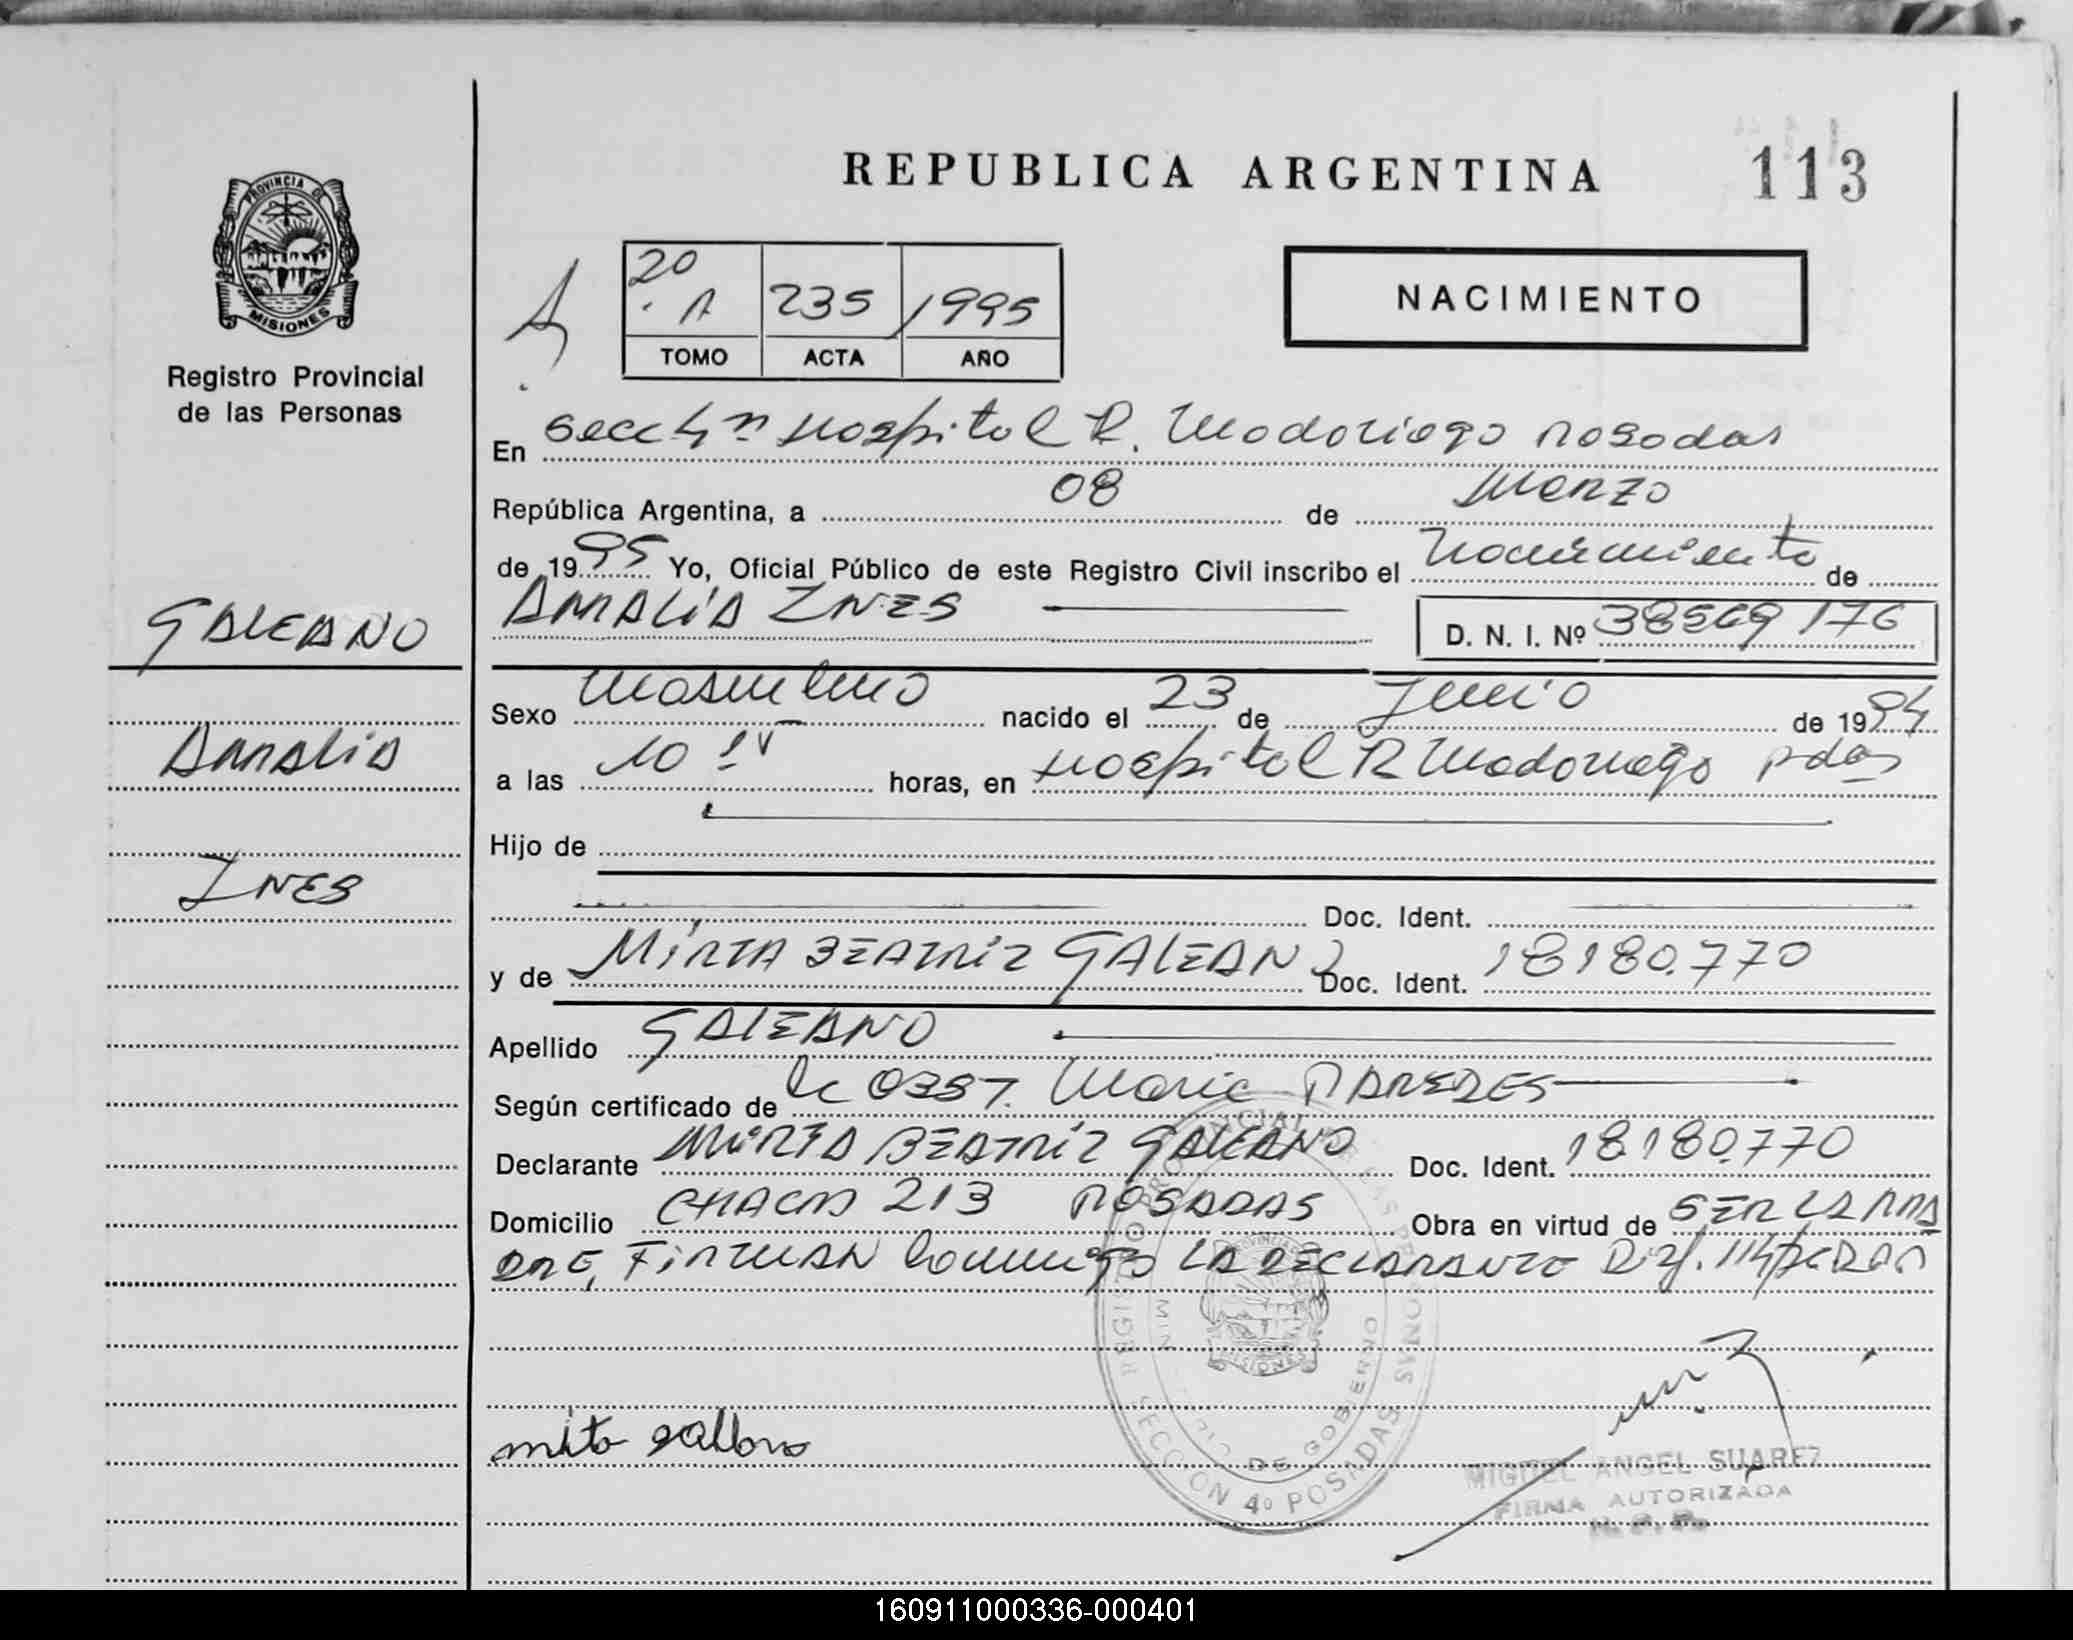 REPUBLICA ARGENTINA
113
PROVINCIA DE MISIONES
Registro Provincial
de las Personas
20
A 235 1995
TOMO ACTA AÑO
NACIMIENTO
En Secc 4ª Hospital R. Madariaga Posadas
República Argentina, a 08 de Marzo
de 1995 Yo, Oficial Público de este Registro Civil inscribo el Nacimiento de
AMALIA INES
D. N. I. Nº 38569176
GALEANO
Amalia
INES
Sexo Masculino nacido el 23 de Junio de 1994
a las 10 horas, en Hospital R Madariaga Pdas
Hijo de
Doc. Ident.
y de MIRTA BEATRIZ GALEANO Doc. Ident. 18180.770
Apellido GALEANO
Según certificado de la OBST. Maria PAREDES
Declarante MIRTA BEATRIZ GALEANO Doc. Ident. 18.180.770
Domicilio CHACO 213 POSADAS Obra en virtud de SER LA MA
DRE, FIRMAN Conmigo LA DECLARANTE
REGISTRO PROVINCIAL DE LAS PERSONAS
MINISTERIO DE GOBIERNO
MISIONES
SECCION 4º POSADAS
MIGUEL ANGEL SUAREZ
FIRMA AUTORIZADA
R. P. P.
160911000336-000401